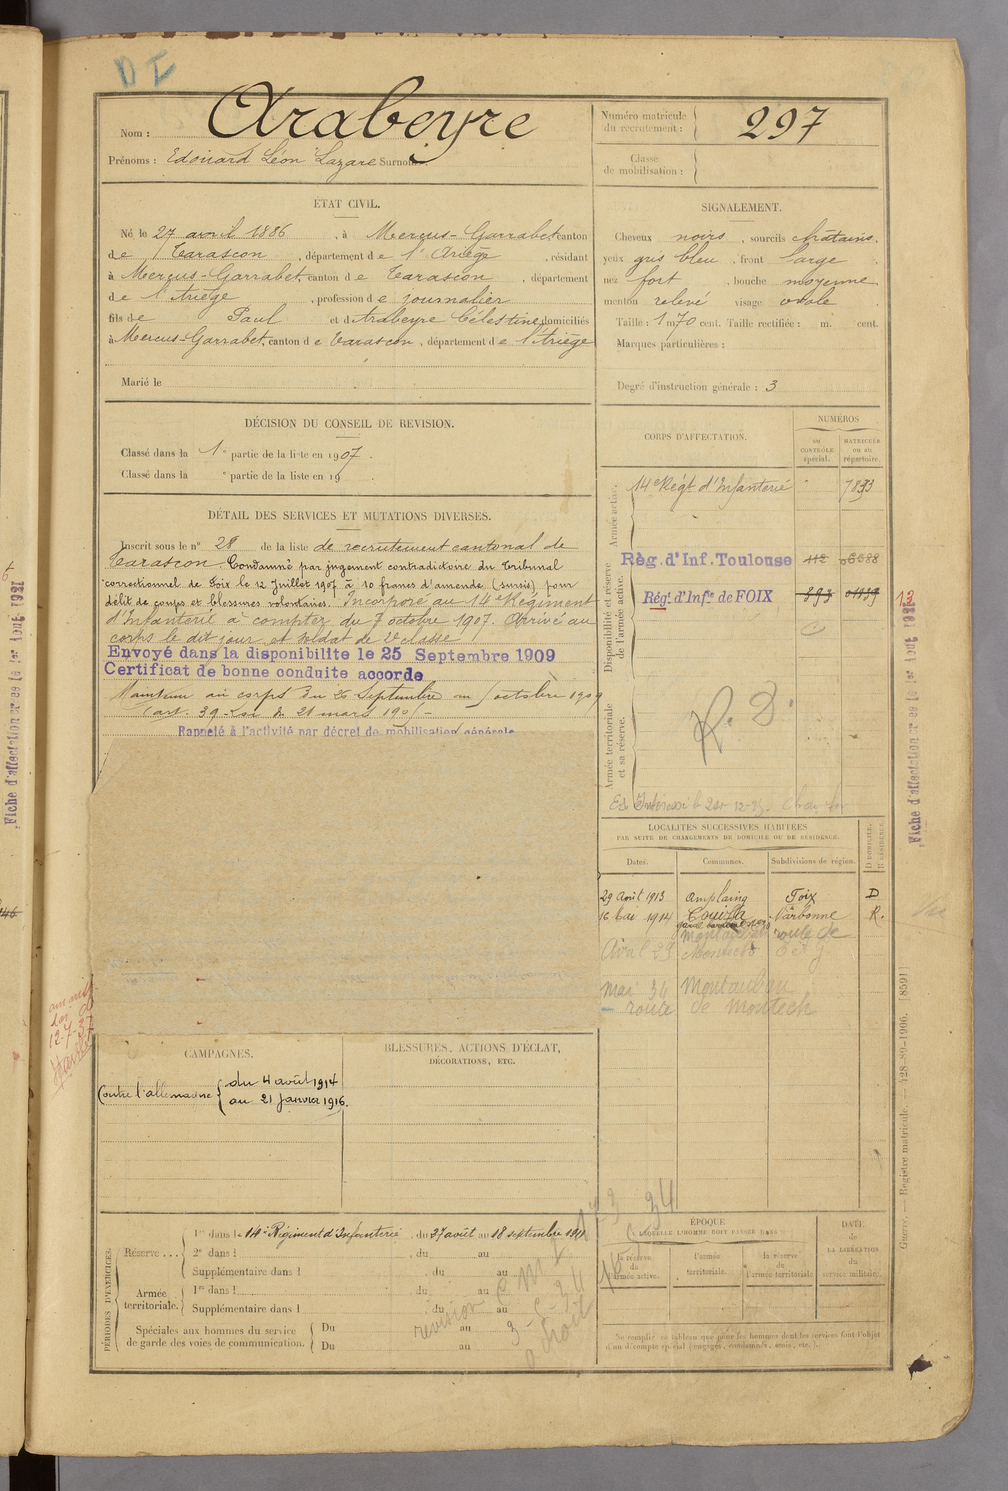 D I
Nom : Arabeyre
Prénoms : Edouard Léon Lazare Surnoms
Numéro matricule du recrutement : 297
Classe de mobilisation :
ÉTAT CIVIL.
Né le 27 avril 1886, à Mercus-Garrabet, canton
de Tarascon, département de l'Ariège, résidant
à Mercus-Garrabet, canton de Tarascon, département
de l'Ariège, profession de journalier
fils de Paul et d'Arabeyre Célestine, domiciliés
à Mercus-Garrabet, canton de Tarascon, département de l'Ariège
Marié le
SIGNALEMENT.
Cheveux noirs, sourcils chatains.
yeux gris bleu, front large
nez fort, bouche moyenne
menton relevé visage ovale
Taille : 1 m 70 cent. Taille rectifiée : m. cent.
Marques particulières :
Degré d'instruction générale : 3
DÉCISION DU CONSEIL DE REVISION.
Classé dans la 1e partie de la liste en 1907.
Classé dans la e partie de la liste en 19
DÉTAIL DES SERVICES ET MUTATIONS DIVERSES.
Inscrit sous le n° 28 de la liste de recrutement cantonal de
Tarascon. Condamné par jugement contradictoire du Tribunal
correctionnel de Foix le 12 Juillet 1907 à 10 francs d'amende (sursis) pour
délit de coups et blessures volontaires. Incorporé au 14e Régiment
d'Infanterie à compter du 7 octobre 1907. Arrivé au
corps le dit jour et soldat de 2e classe
Envoyé dans la disponibilite le 25 Septembre 1909
Certificat de bonne conduite accorde
Maintenu au corps du 26 Septembre au 5 octobre 1909
(art. 39 Loi du 21 mars 1905 -
Rappelé à l'activité par décret de mobilisation générale
CORPS D'AFFECTATION.
NUMÉROS
AU CONTRÔLE spécial.
MATRICULES OU AU répertoire.
Armée active.
14e Régt d'Infanterie 7893
Disponibilité et réserve de l'armée active.
Règ. d'Inf. Toulouse 112
Régt. d'Infie de FOIX 893
Armée territoriale et sa réserve.
R. D.
LOCALITÉS SUCCESSIVES HABITÉES
PAR SUITE DE CHANGEMENTS DE DOMICILE OU DE RÉSIDENCE.
Dates. Communes. Subdivisions de région. D DOMICILE. R RÉSIDENCE.
29 Août 1913 Amplaing Foix D
16 1914 Couiza Narbonne R.
route de
Avril 29
mai 36 Montauban
route de Montech
CAMPAGNES.
Contre l'allemagne { du 4 août 1914
au 21 Janvier 1916.
BLESSURES, ACTIONS D'ÉCLAT,
DÉCORATIONS, ETC.
PÉRIODES D'EXERCICES.
Réserve ... 1re dans le 14e Régiment d'Infanterie, du 27 août au 18 septembre 1911
2e dans l du au
Supplémentaire dans l du au
Armée territoriale. 1re dans l du au
Supplémentaire dans l du au
Spéciales aux hommes du service de garde des voies de communication. Du au
Du au
revision
ÉPOQUE
À LAQUELLE L'HOMME DOIT PASSER DANS
la réserve de l'armée active.
l'armée territoriale.
la réserve de l'armée territoriale
DATE DE LA LIBÉRATION du service militaire.
Ne remplir ce tableau que pour les hommes dont les services font l'objet
d'un décompte spécial (engagés, condamnés, omis, etc.).
Fiche d'affectation créée le 1er Aout 1921
Fiche d'affectation créée le 1er Aout 1921
Guerre. — Registre matricule. — 428-89-1906. [8591]
12-7-37